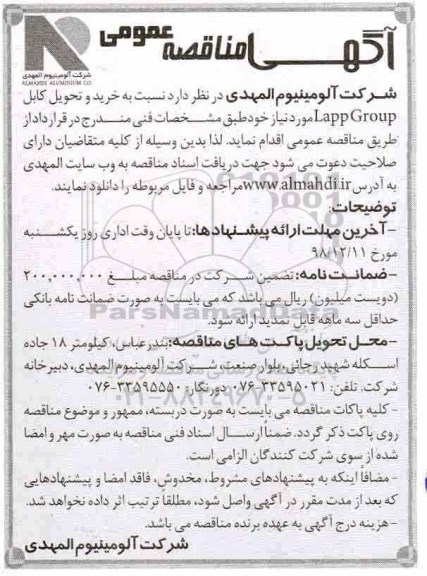 آگهی مناقصه عمومی
شرکت آلومینیوم المهدی
ALMAHDI ALUMINIUM CO
شرکت آلومینیوم المهدی در نظر دارد نسبت به خرید و تحویل کابل
Lapp Group مورد نیاز خود طبق مشخصات فنی مندرج در قرارداد از
طریق مناقصه عمومی اقدام نماید. لذا بدین وسیله از کلیه متقاضیان دارای
صلاحیت دعوت می شود جهت دریافت اسناد مناقصه به وب سایت المهدی
به آدرس www.almahdi.ir مراجعه و فایل مربوطه را دانلود نمایند.
توضیحات:
-آخرین مهلت ارائه پیشنهادها: تا پایان وقت اداری روز یکشنبه
مورخ ۹۸/۱۲/۱۱
-ضمانت نامه: تضمین شرکت در مناقصه مبلغ ۲۰۰,۰۰۰,۰۰۰
(دویست میلیون) ریال می باشد که می بایست به صورت ضمانت نامه بانکی
حداقل سه ماهه قابل تمدید ارائه شود.
-محل تحویل پاکت های مناقصه: بندرعباس، کیلومتر ۱۸ جاده
اسکله شهید رجائی، بلوار صنعت، شرکت آلومینیوم المهدی، دبیرخانه
شرکت. تلفن: ۳۳۵۹۵۰۲۱-۰۷۶ دورنگار: ۳۳۵۹۵۵۵۰-۰۷۶
- کلیه پاکات مناقصه می بایست به صورت دربسته، ممهور و موضوع مناقصه
روی پاکت ذکر گردد. ضمنا ارسال اسناد فنی مناقصه به صورت مهر و امضا
شده از سوی شرکت کنندگان الزامی است.
- مضافاً اینکه به پیشنهادهای مشروط، مخدوش، فاقد امضا و پیشنهادهایی
که بعد از مدت مقرر در آگهی واصل شود، مطلقاً ترتیب اثر داده نخواهد شد.
-هزینه درج آگهی به عهده برنده مناقصه می باشد.
شرکت آلومینیوم المهدی
ParsNamadData
۰۲۱-۸۸۳۴۹۶۷۰-۵